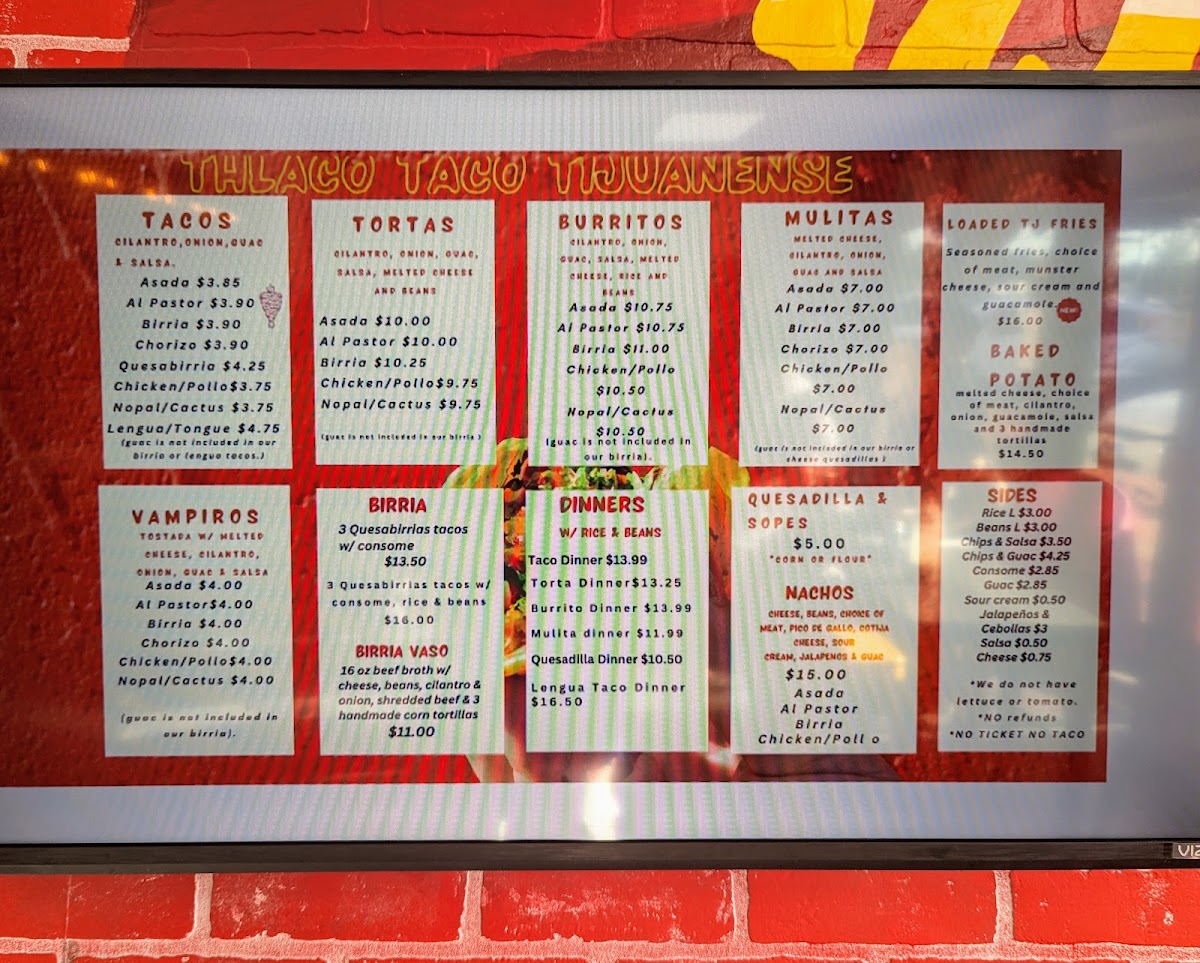 THLACO TACO TIJUANENSE
TACOS
CILANTRO,ONION,GUAC
& SALSA.
Asada $3.85
Al Pastor $3.90
Birria $3.90
Chorizo $3.90
Quesabirria $4.25
Chicken/Pollo$3.75
Nopal/Cactus $3.75
Lengua/Tongue $4.75
(guac is not included in our
birria or lengua tacos.)
TORTAS
CILANTRO, ONION, GUAC,
SALSA, MELTED CHEESE
AND BEANS
Asada $10.00
Al Pastor $10.00
Birria $10.25
Chicken/Pollo$9.75
Nopal/Cactus $9.75
(guac is not included in our birria )
BURRITOS
CILANTRO, ONION,
GUAC, SALSA, MELTED
CHEESE, RICE AND
BEANS
Asada $10.75
Al Pastor $10.75
Birria $11.00
Chicken/Pollo
$10.50
Nopal/Cactus
$10.50
(guac is not included in
our birria).
MULITAS
MELTED CHEESE,
CILANTRO, ONION,
GUAC AND SALSA
Asada $7.00
Al Pastor $7.00
Birria $7.00
Chorizo $7.00
Chicken/Pollo
$7.00
Nopal/Cactus
$7.00
(guac is not included in our birria or
cheese quesadillas )
LOADED TJ FRIES
Seasoned fries, choice
of meat, munster
cheese, sour cream and
guacamole.
NEW!
$16.00
BAKED
POTATO
melted cheese, choice
of meat, cilantro,
onion, guacamole, salsa
and 3 handmade
tortillas
$14.50
VAMPIROS
TOSTADA W/ MELTED
CHEESE, CILANTRO,
ONION, GUAC & SALSA
Asada $4.00
Al Pastor$4.00
Birria $4.00
Chorizo $4.00
Chicken/Pollo$4.00
Nopal/Cactus $4.00
(guac is not included in
our birria).
BIRRIA
3 Quesabirrias tacos
w/ consome
$13.50
3 Quesabirrias tacos w/
consome, rice & beans
$16.00
BIRRIA VASO
16 oz beef broth w/
cheese, beans, cilantro &
onion, shredded beef & 3
handmade corn tortillas
$11.00
DINNERS
W/ RICE & BEANS
Taco Dinner $13.99
Torta Dinner$13.25
Burrito Dinner $13.99
Mulita dinner $11.99
Quesadilla Dinner $10.50
Lengua Taco Dinner
$16.50
QUESADILLA &
SOPES
$5.00
*CORN OR FLOUR*
NACHOS
CHEESE, BEANS, CHOICE OF
MEAT, PICO DE GALLO, COTIJA
CHEESE, SOUR
CREAM, JALAPENOS & GUAC
$15.00
Asada
Al Pastor
Birria
Chicken/Poll o
SIDES
Rice L $3.00
Beans L $3.00
Chips & Salsa $3.50
Chips & Guac $4.25
Consome $2.85
Guac $2.85
Sour cream $0.50
Jalapeños &
Cebollas $3
Salsa $0.50
Cheese $0.75
*We do not have
lettuce or tomato.
*NO refunds
*NO TICKET NO TACO